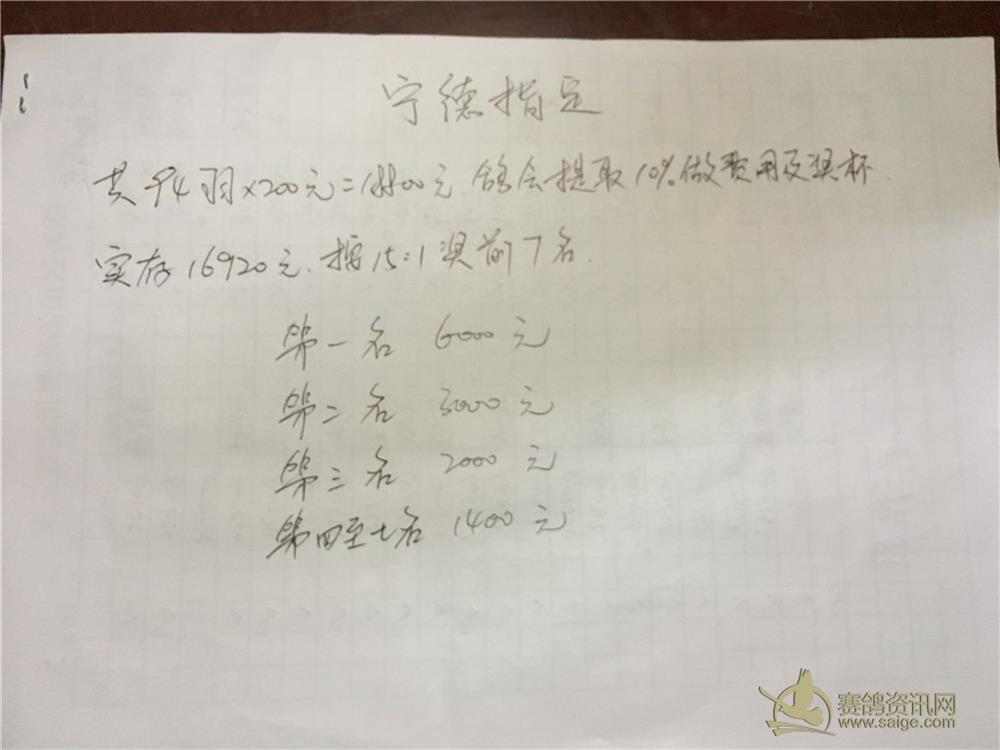 宁德指定
共94羽×200元=18800元.鸽会提取10%做费用及奖杯.
实存16920元.按15:1奖前7名.
第一名 6000元
第二名 3000元
第三名 2000元
第四至七名 1400元
赛鸽资讯网
www.saige.com